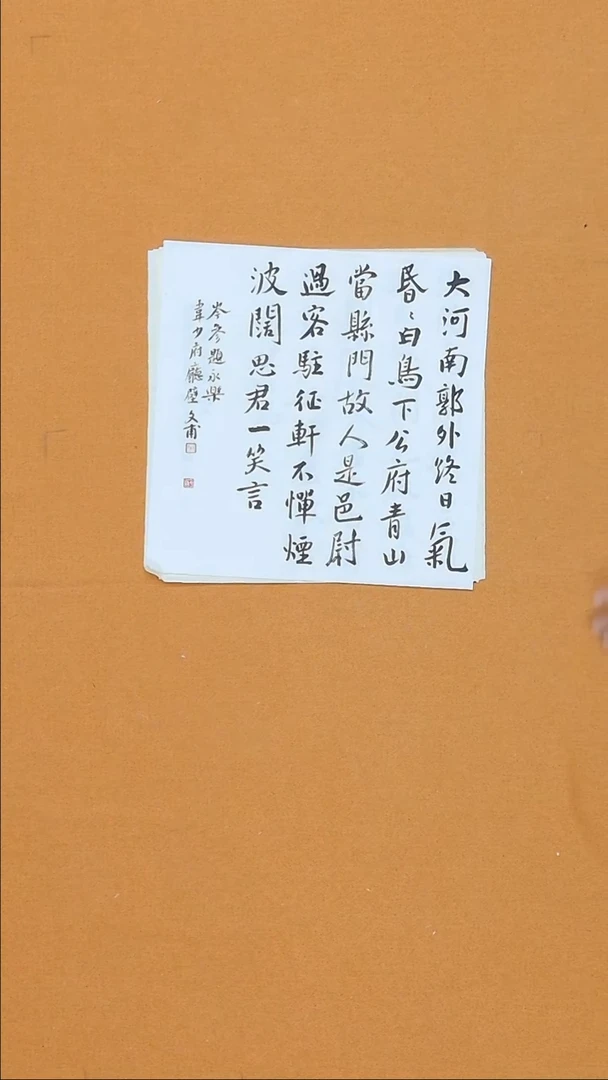 大河南郭外終日氣
昏〻白鳥下公府青山
當縣門故人是邑尉
過客駐征軒不憚煙
波闊思君一笑言
岑參題永樂
韋少府廳壁文甫